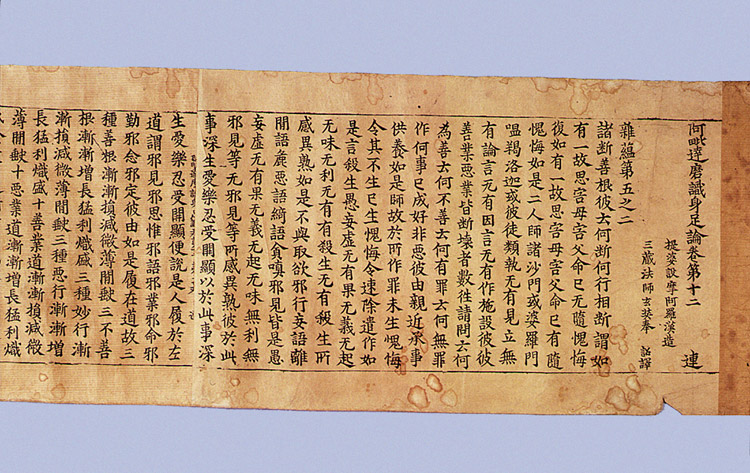 阿毗達磨識身足論卷第十二
連
提婆設摩阿羅漢造
三藏法師玄奘奉 詔譯
雜蘊第五之二
諸断善根彼云何断何行相断謂如
有一故思害母害父命已无隨愧悔
復如有一故思害母害父命已有隨
愧悔如是二人師諸沙門或婆羅門
嗢羯洛迦或彼徒類執无有見立無
有論言无有因言无有作施設彼彼
善業惡業皆断壞者數往請問云何
為善云何不善云何有罪云何無罪
作何事已成好非惡彼由親近承事
供養如是師故於所作罪未生愧悔
令其不生已生愧悔令速除遣作如
是言殺生愚妄虛无有果无義无起
无味无利无有有殺生无有殺生所
感異熟如是不與取欲邪行妄語離
間語麁惡語綺語貪嗔邪見皆是愚
妄虛无有果无義无起无味無利無
邪見等无邪見等所感異熟彼於此
事深生愛樂忍受開顯以於此事深
生愛樂忍受開顯便說是人履於左
道謂邪見邪思惟邪語邪業邪命邪
勤邪念邪定彼由如是履左道故三
種善根漸漸損減微薄間歇三不善
根漸漸增長猛利熾盛三種妙行漸
漸損減微薄間歇三種惡行漸漸增
長猛利熾盛十善業道漸漸損減微
薄間歇十惡業道漸漸增長猛利熾